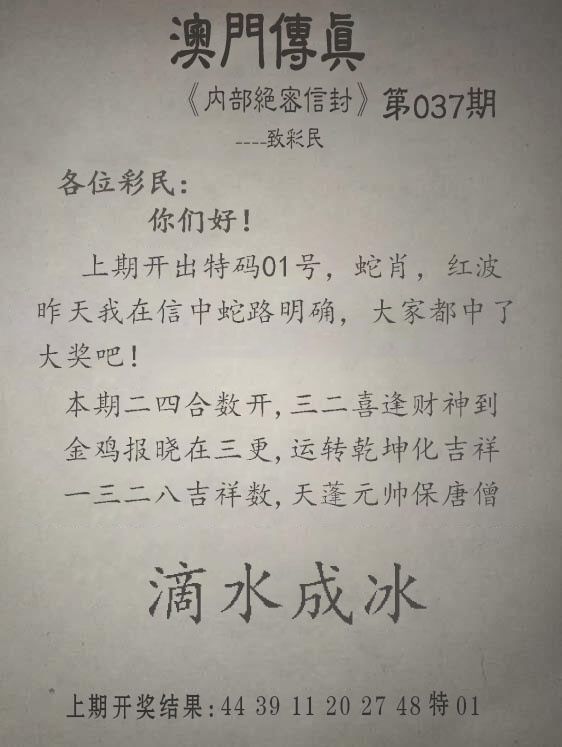 澳門傳眞
《内部絕密信封》第037期
----致彩民
各位彩民：
你们好！
上期开出特码01号，蛇肖，红波
昨天我在信中蛇路明确，大家都中了
大奖吧！
本期二四合数开,三二喜逢财神到
金鸡报晓在三更,运转乾坤化吉祥
一三二八吉祥数,天蓬元帅保唐僧
滴水成冰
上期开奖结果:44 39 11 20 27 48特01